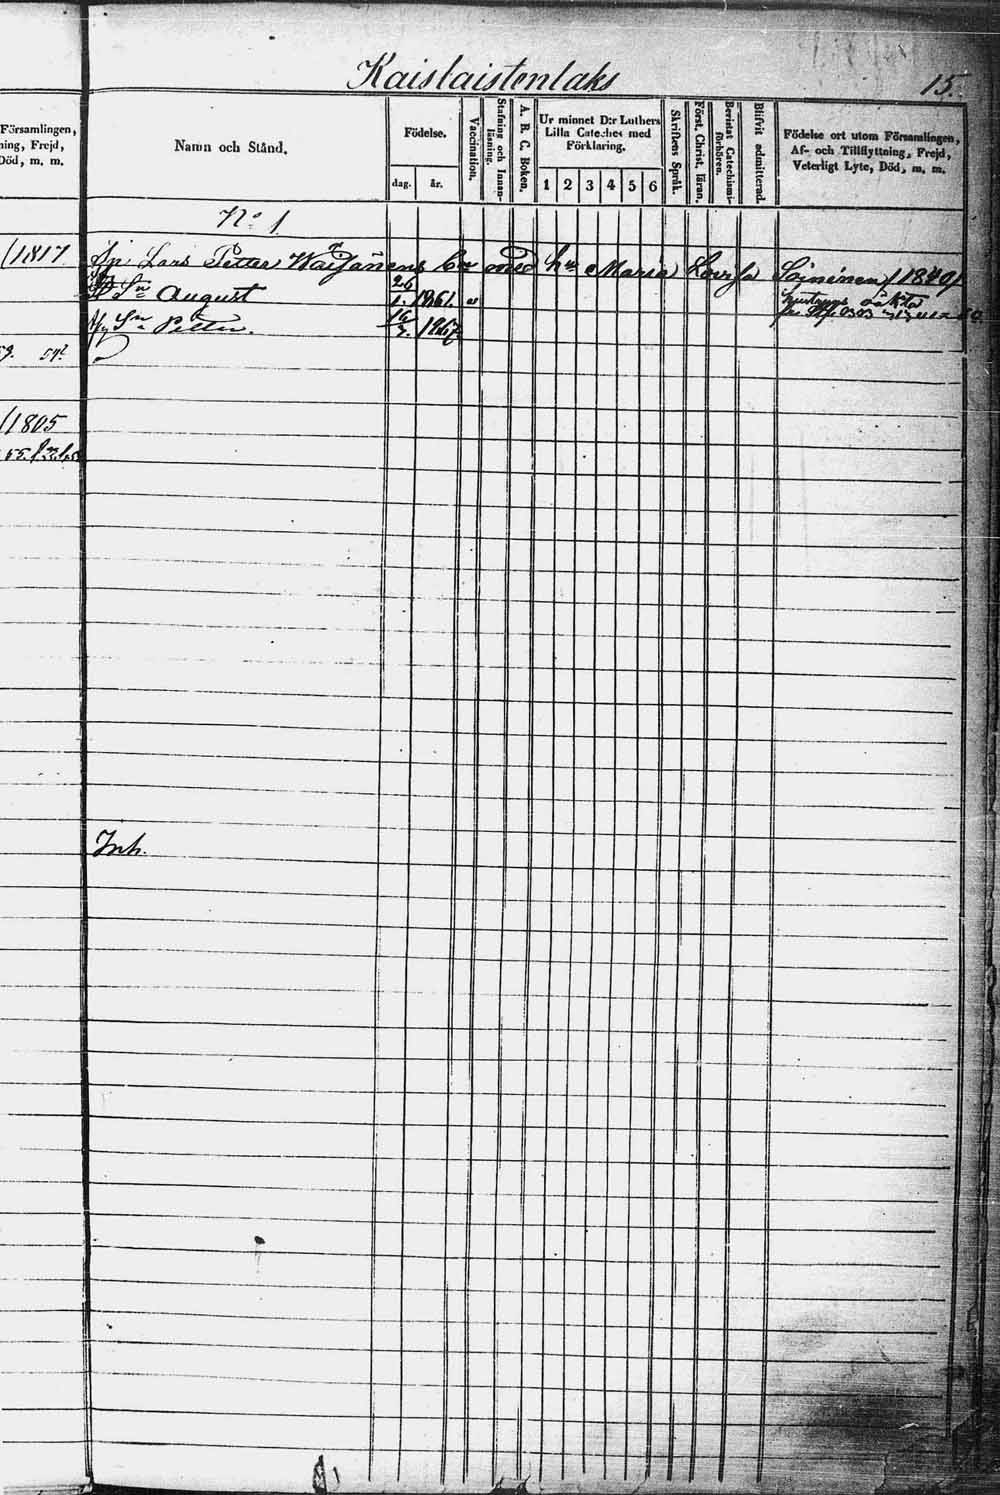 Kaislaistenlaks 15.
Församlingen,
ning, Frejd,
Död, m. m.
Namn och Stånd.
Födelse.
dag. år.
Vaccination.
Stafning och Innan-
läsning.
A. B. C. Boken.
Ur minnet D:r Luthers
Lilla Cateches med
Förklaring.
1 2 3 4 5 6
Skriftens Språk.
Först. Christ. läran.
Bevistat Catechismi-
förhören.
Blifvit admitterad.
Födelse ort utom Församlingen,
Af- och Tillflyttning, Frejd,
Veterligt Lyte, Död, m. m.
No 1
/1817 Lars Petter med Maria Lovisa Soininen /1840/
Sn August 26/1. 1861.
Sn Petter. 16/7. 1867.
/1805
Inh.